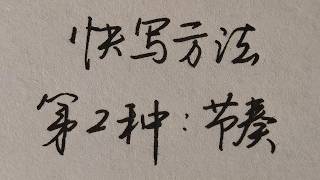 快写方法
第2种:节奏